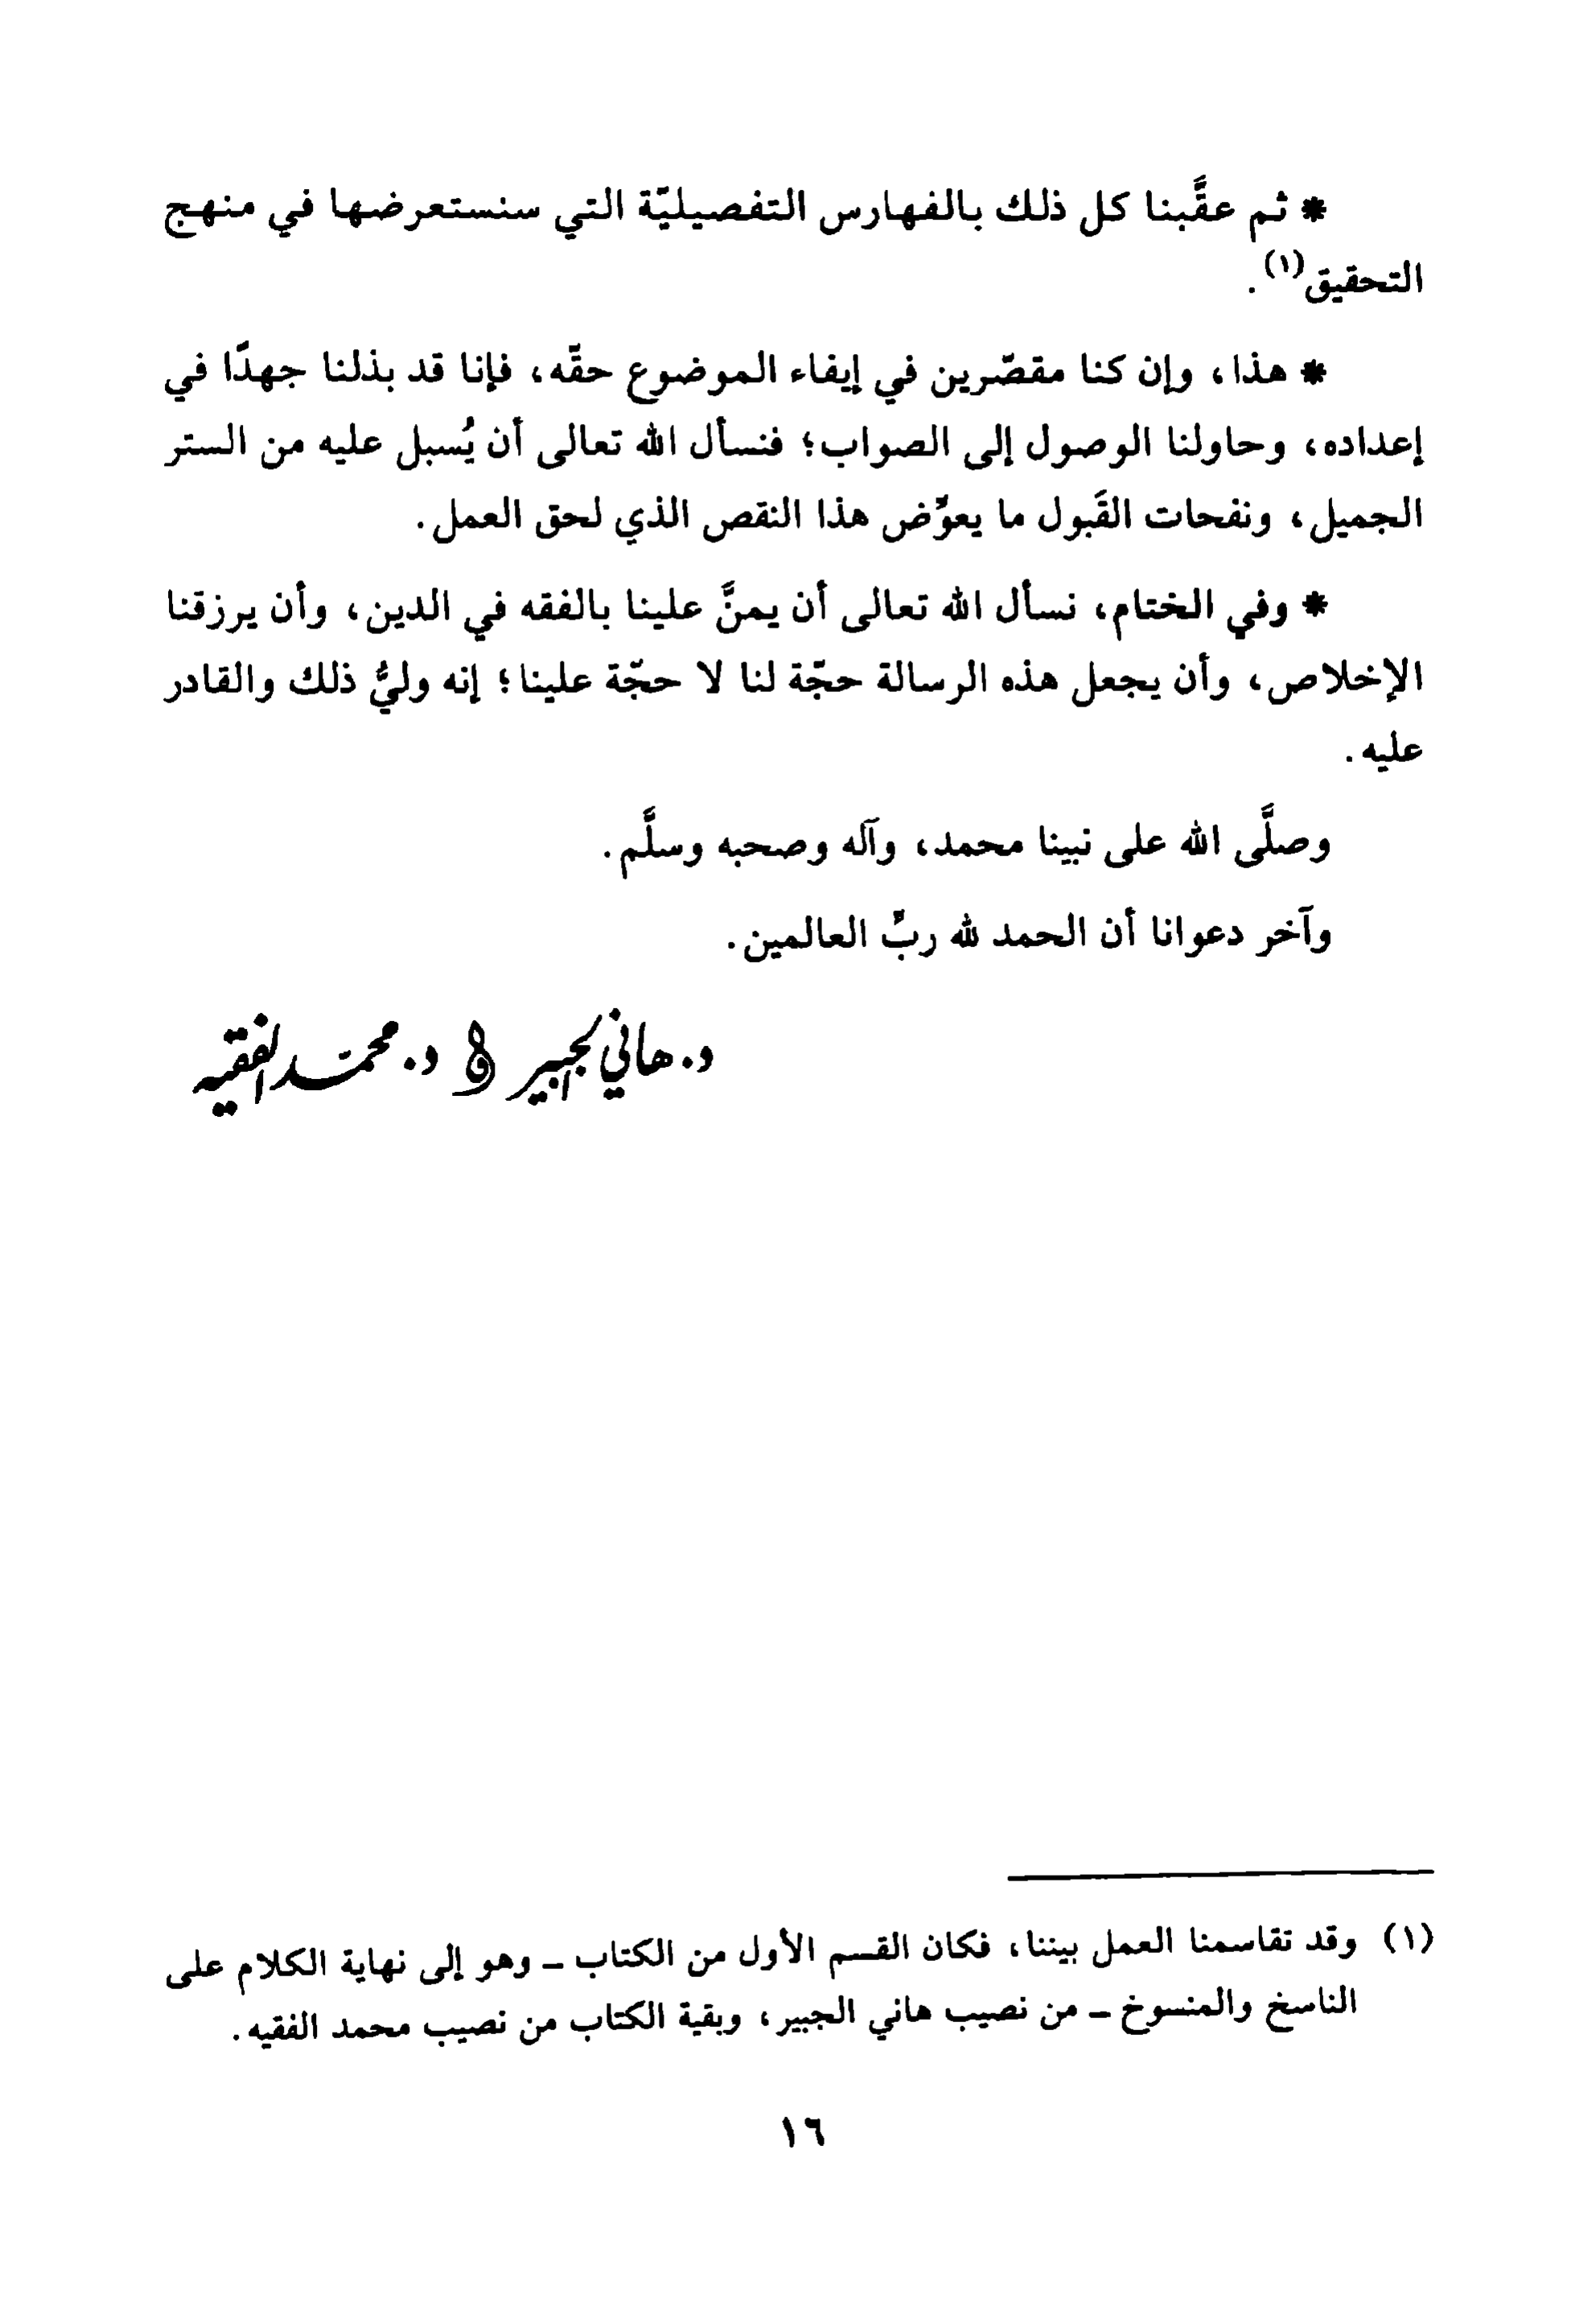 * ثم عقَّبنا كل ذلك بالفهارس التفصيليّة التي سنستعرضها في منهج
التحقيق(١).
* هذا، وإن كنا مقصّرين في إيفاء الموضوع حقّه، فإنا قد بذلنا جهدًا في
إعداده، وحاولنا الوصول إلى الصواب؛ فنسأل الله تعالى أن يُسبل عليه من الستر
الجميل، ونفحات القَبول ما يعوِّض هذا النقص الذي لحق العمل.
* وفي الختام، نسأل الله تعالى أن يمنَّ علينا بالفقه في الدين، وأن يرزقنا
الإخلاص، وأن يجعل هذه الرسالة حجّة لنا لا حجّة علينا؛ إنه وليُّ ذلك والقادر
عليه.
وصلَّى الله على نبينا محمد، وآله وصحبه وسلَّم.
وآخر دعوانا أن الحمد لله ربِّ العالمين.
د. هاني الجبير د. محمد الفقيه
(١) وقد تقاسمنا العمل بيننا، فكان القسم الأول من الكتاب ـ وهو إلى نهاية الكلام على
الناسخ والمنسوخ ـ من نصيب هاني الجبير، وبقية الكتاب من نصيب محمد الفقيه.
١٦